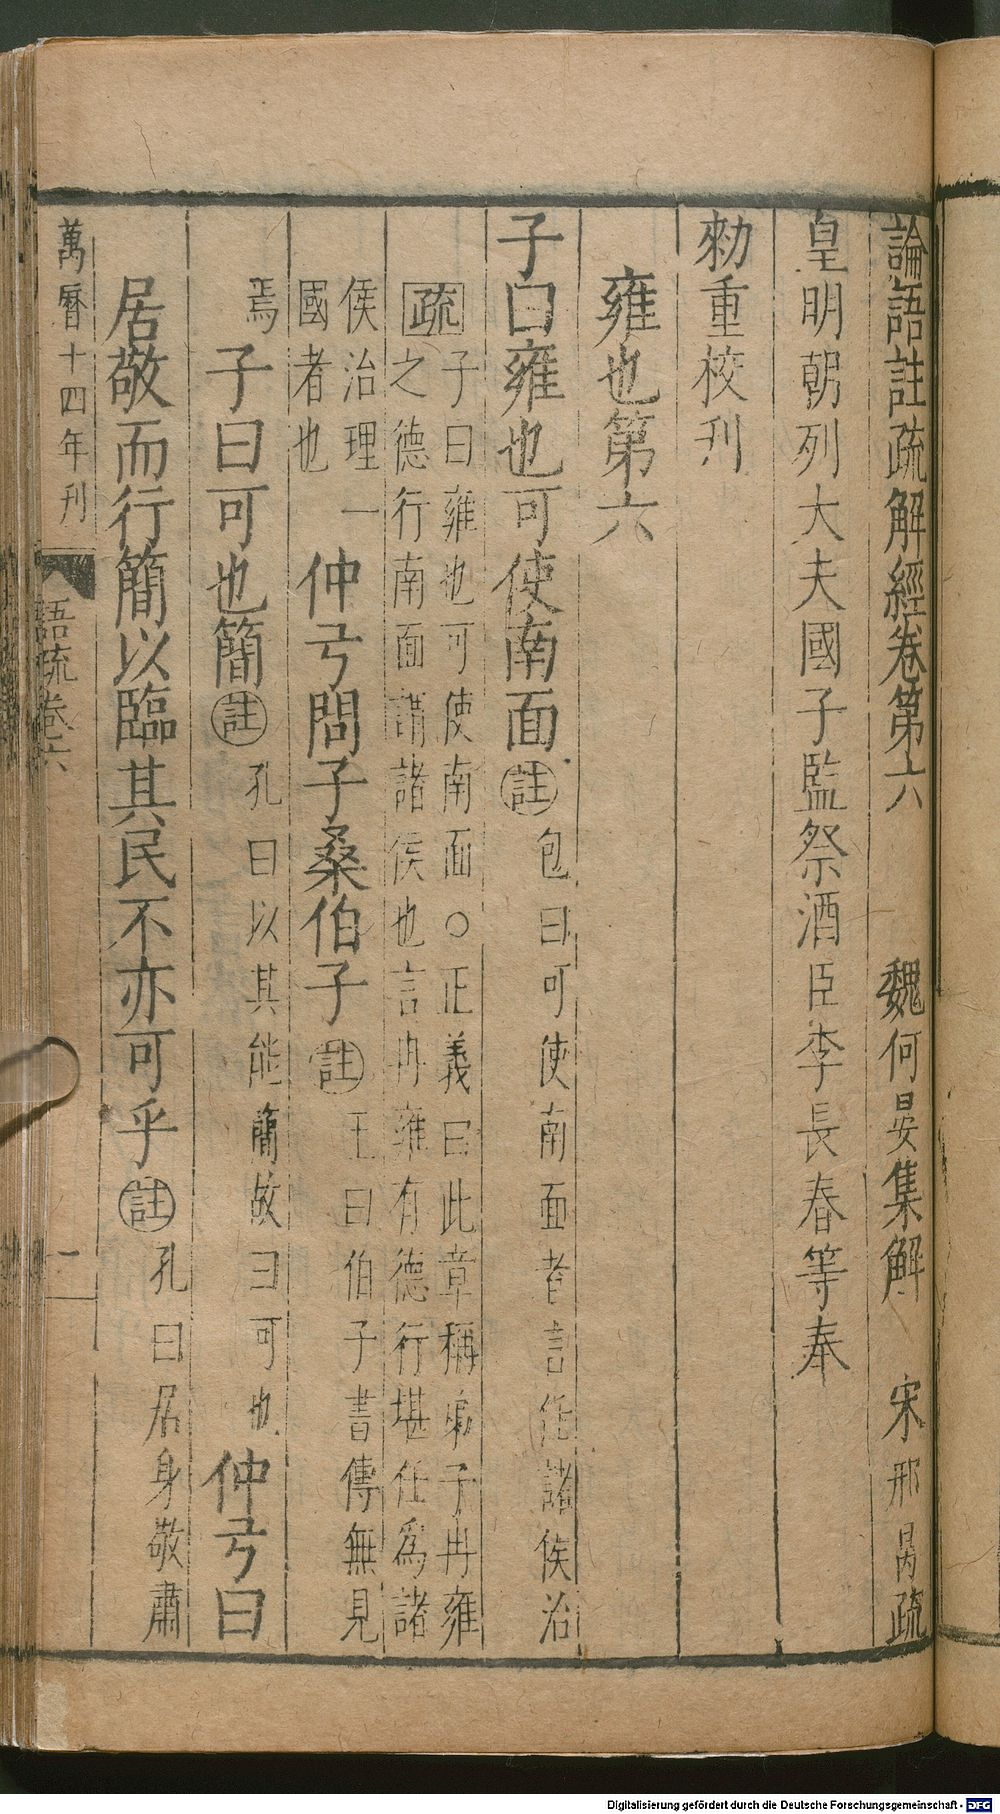 論語註疏解經卷第六　魏何晏集解　宋邢昺疏
皇明朝列大夫國子監祭酒臣李長春等奉
勑重校刋
雍也第六
子曰雍也可使南面註包曰可使南面者言任諸侯治
疏子曰雍也可使南面○正義曰此章稱弟子冉雍
之德行南面謂諸侯也言冉雍有德行堪任爲諸
侯治理一
國者也
仲弓問子桑伯子註王曰伯子書傳無見
焉
子曰可也簡註孔曰以其能簡故曰可也仲弓曰
居敬而行簡以臨其民不亦可乎註孔曰居身敬肅
萬曆十四年刋
語疏卷六
一
Digitalisierung gefördert durch die Deutsche Forschungsgemeinschaft - DFG